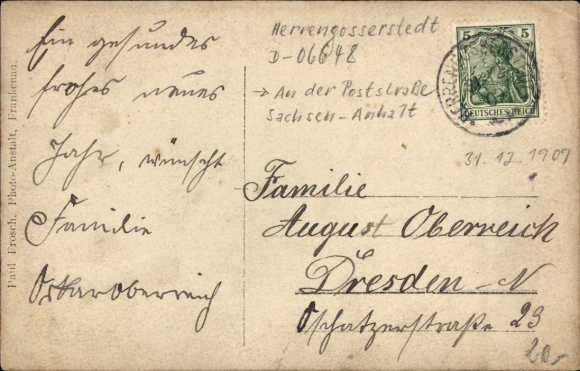 Paul Frosch, Photo-Anstalt, Frankenau.
Ein gesundes
frohes neues
Jahr, wünscht
Familie
Oskar Oberreich
Herrengosserstedt
D-06648
→ An der Poststraße
Sachsen-Anhalt
5 5
DEUTSCHES REICH
31.12.1907
Familie
August Oberreich
Dresden-N
Oschatzerstraße 23
20,-